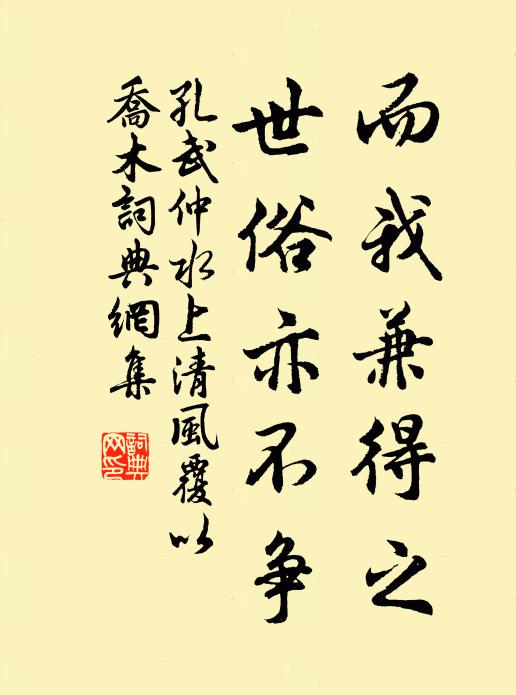 而我兼得之
世俗亦不争
孔武仲水上清風覆以
喬木詞典網集
詞典网印